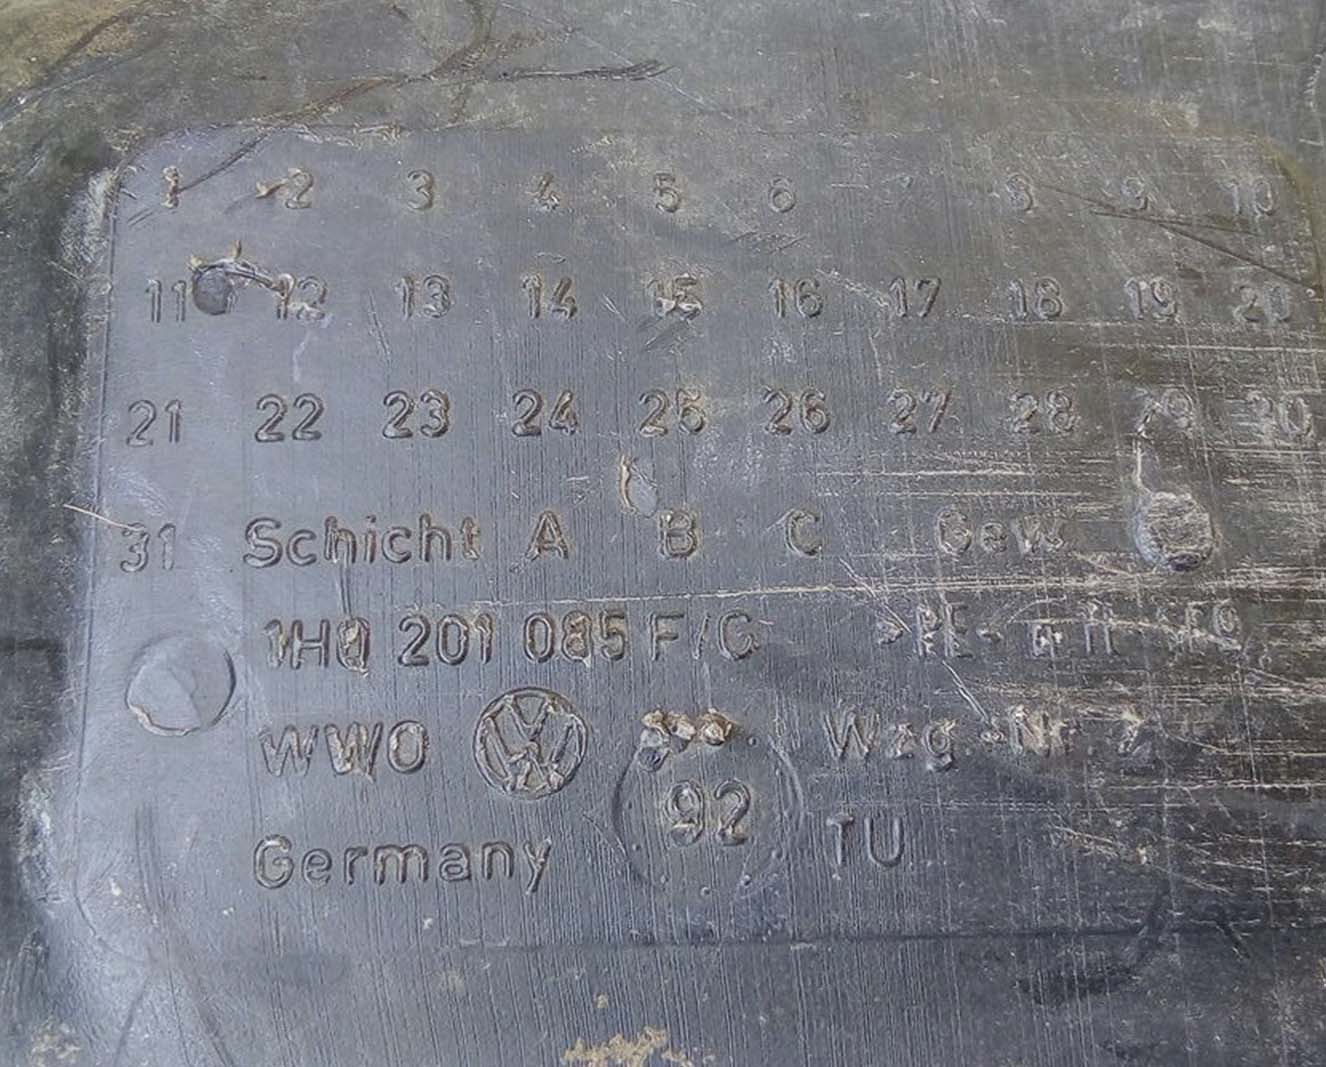 1 2 3 4 5 6 7 8 9 10
11 12 13 14 15 16 17 18 19 20
21 22 23 24 25 26 27 28 29 30
31 Schicht A B C Gew.
1H0 201 085 F/G
WWO VW 92 Wzg.-Nr. 2
Germany TU